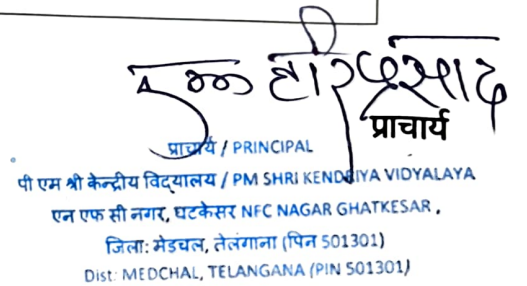 हरिप्रसाद
प्राचार्य
प्राचार्य / PRINCIPAL
पी एम श्री केन्द्रीय विद्यालय / PM SHRI KENDRIYA VIDYALAYA
एन एफ सी नगर, घटकेसर NFC NAGAR GHATKESAR,
जिला: मेडचल, तेलंगाना (पिन 501301)
Dist: MEDCHAL, TELANGANA (PIN 501301)